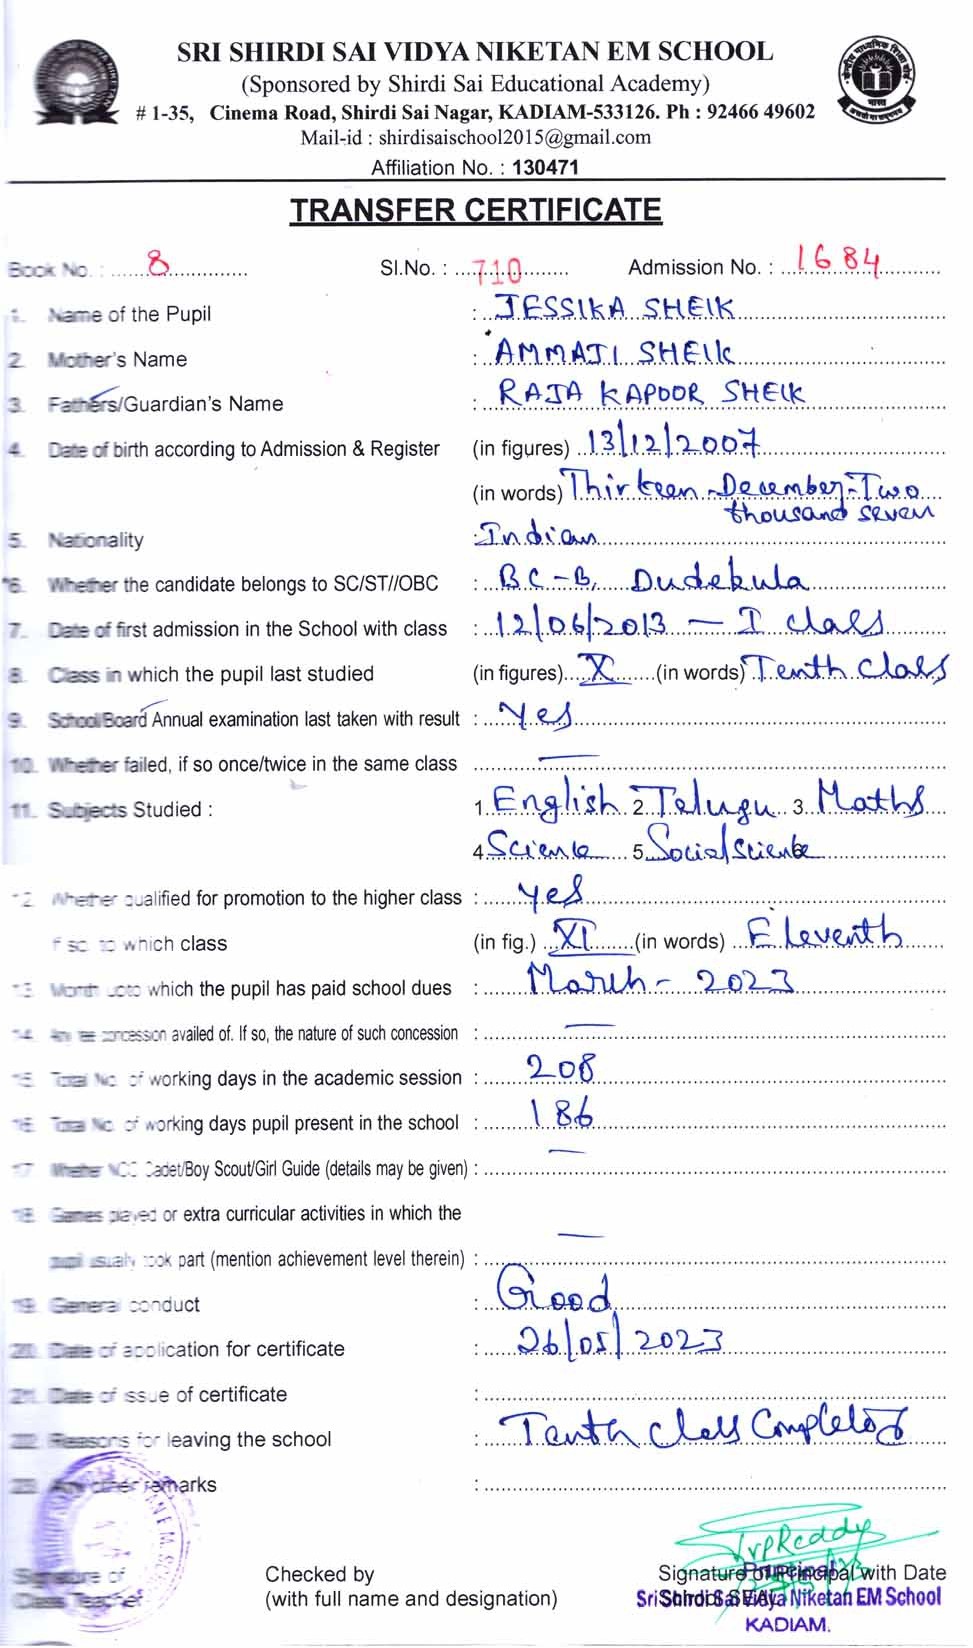 SRI SHIRDI SAI VIDYA NIKETAN EM SCHOOL
(Sponsored by Shirdi Sai Educational Academy)
# 1-35, Cinema Road, Shirdi Sai Nagar, KADIAM-533126. Ph : 92466 49602
Mail-id : shirdisaischool2015@gmail.com
Affiliation No. : 130471
TRANSFER CERTIFICATE
Book No. : 8 Sl.No. : 710 Admission No. : 1684
1. Name of the Pupil : JESSIKA SHEIK
2. Mother's Name : AMMAJI SHEIK
3. Fathers/Guardian's Name : RAJA KAPOOR SHEIK
4. Date of birth according to Admission & Register (in figures) 13/12/2007
(in words) Thirteen - December - Two
thousand seven
5. Nationality : Indian
6. Whether the candidate belongs to SC/ST//OBC : BC-B, Dudekula
7. Date of first admission in the School with class : 12/06/2013 - I class
8. Class in which the pupil last studied (in figures) X (in words) Tenth Class
9. School/Board Annual examination last taken with result : Yes
10. Whether failed, if so once/twice in the same class —
11. Subjects Studied : 1. English 2. Telugu 3. Maths
4. Science 5. Social Science 6.
12. Whether qualified for promotion to the higher class : Yes
if so, to which class (in fig.) XI (in words) Eleventh
13. Month upto which the pupil has paid school dues : March - 2023
14. Any fee concession availed of. If so, the nature of such concession : —
15. Total No. of working days in the academic session : 208
16. Total No. of working days pupil present in the school : 186
17. Whether NCC Cadet/Boy Scout/Girl Guide (details may be given) : —
18. Games played or extra curricular activities in which the
pupil usually took part (mention achievement level therein) : —
19. General conduct : Good
20. Date of application for certificate : 26/05/2023
21. Date of issue of certificate :
22. Reasons for leaving the school : Tenth Class Completed
23. Any other remarks :
Signature of Class Teacher
Checked by
(with full name and designation)
Signature of Principal with Date
School SEAL
Principal
Sri Shirdi Sai Vidya Niketan EM School
KADIAM.